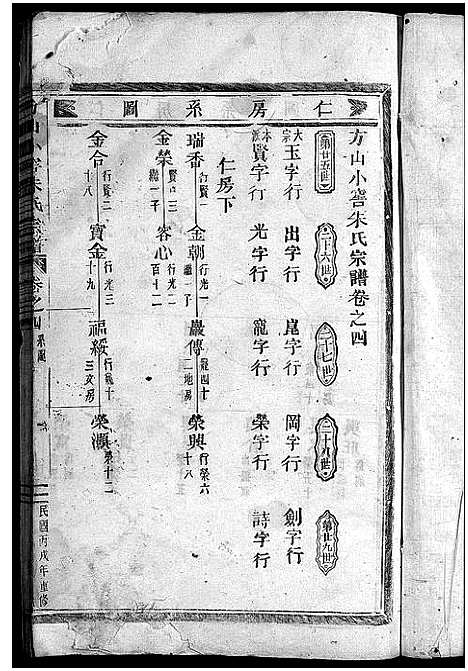 方山小窖朱氏宗譜卷之四
仁房系圖
第廿五世
二十六世
二十七世
二十八世
第廿九世
大宗 玉字行 出字行 崑字行 岡字行 劍字行
本派 賢字行 光字行 寵字行 榮字行 詩字行
仁房下
瑞香 行賢一 金朝 行光一 繼一子 嚴傳 寵四十 二地房 榮興 行榮六 十八
金榮 賢三 繼一子 容心 行光二 百十二
金合 行賢二 十八 寶金 行光三 十九 福綏 行寵十 三文房 榮灝 榮十二
方山小窖朱氏宗譜 卷之四 系圖
民國丙戌年重修